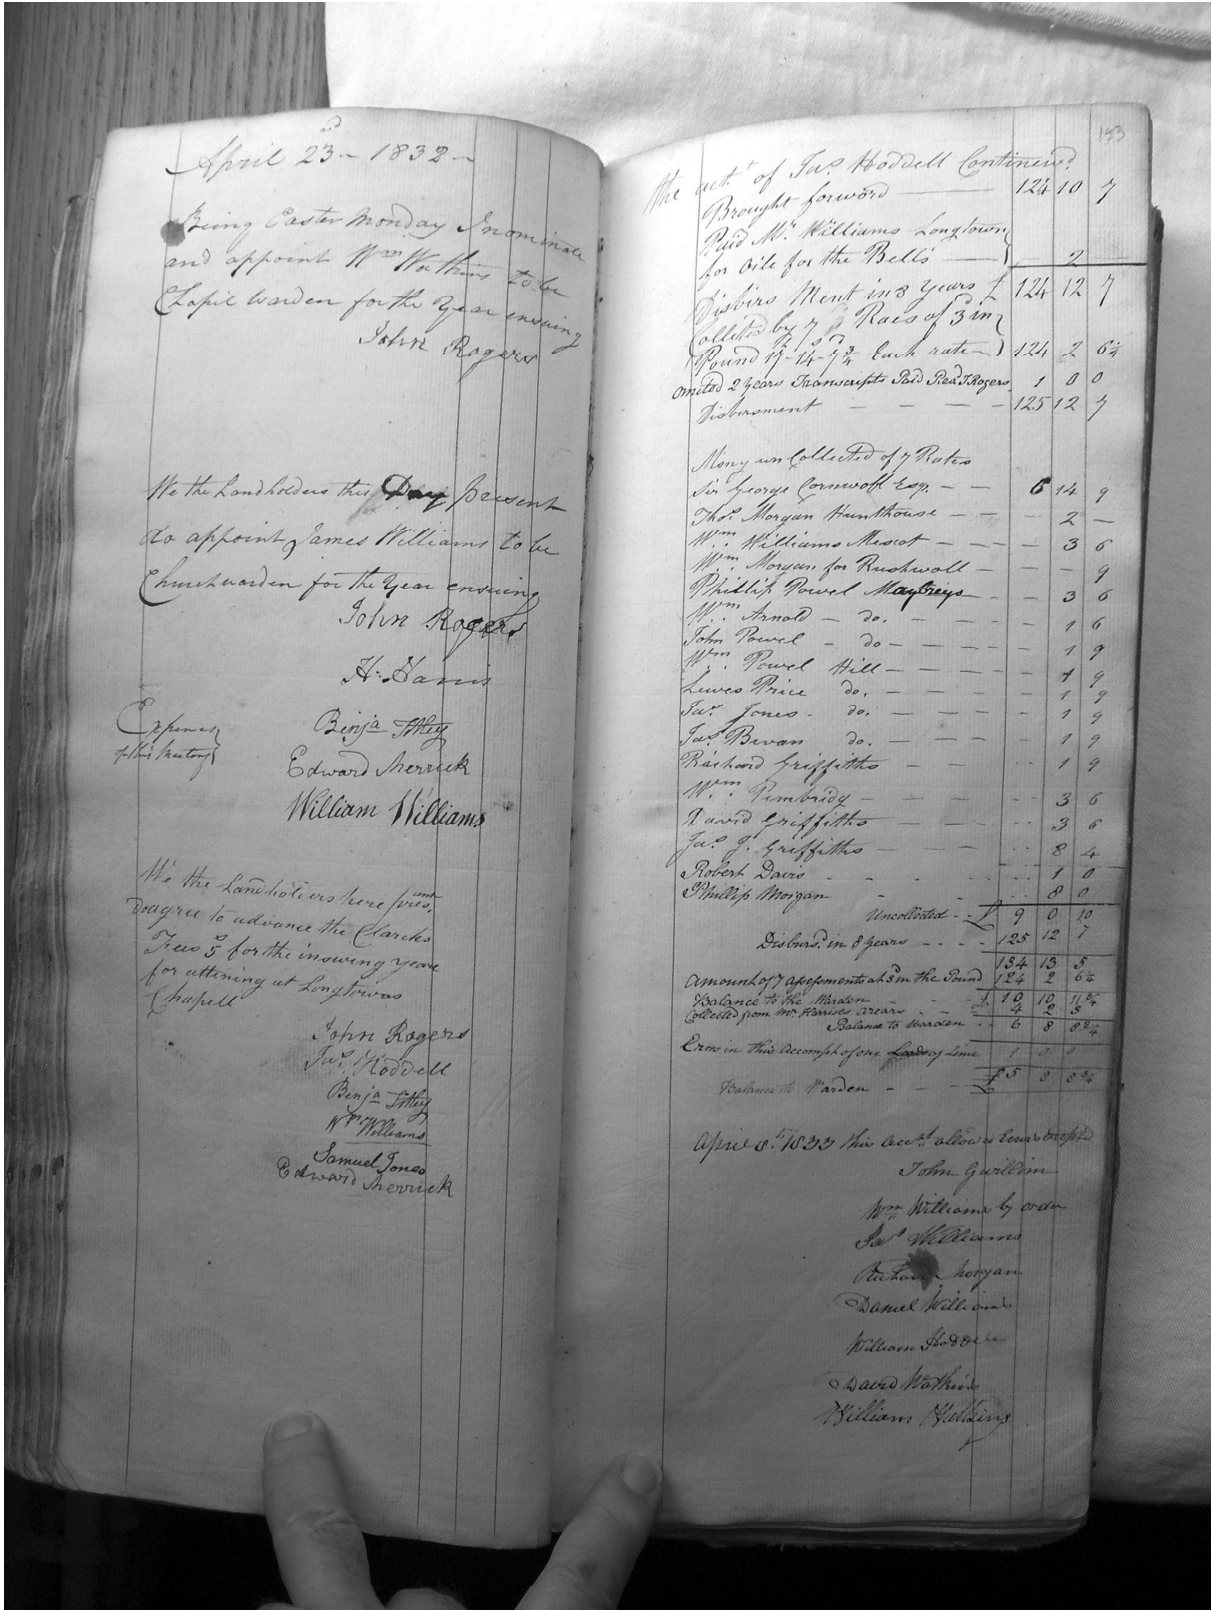 April 23d - 1832 -
Being Easter Monday I nominate
and appoint Wm Watkins to be
Chapel Warden for the Year ensuing
John Rogers
We the Landholders this Day present
do appoint James Williams to be
Churchwarden for the Year ensuing
John Rogers
H. Harris
Expences
of this Meeting
Benja
Edward Merrick
William Williams
We the Landholders here present
do agree to advance the Clarcks
Fees 5s for the insuing Year
for attening at Longtown
Chapell
John Rogers
Jas. Hoddell
Benja
Wm Williams
Samuel Jones
Edward Merrick
153
the acct of Jas. Hoddell Continued
Brought forword — 124 10 7
Paid Mr. Williams Longtown
for Oile for the Bells — 2 —
Disbirs Ment in 8 Years £ 124 12 7
Colleted by 7 Raes of 3d in
£ s d
Pound 17-14-7¾ Each rate - 124 2 6¼
omited 2 years Transcripts Paid Revd J Rogers 1 0 0
Disbursment - - - - 125 12 7
Mony un Collected of 7 Rates
Sir George Cornwall Esqr. - - 6 14 9
Thos. Morgan Hunthouse - - - 2 -
Wm. Williams Mescot - - - - 3 6
Wm. Morgan for Rushwall - - - 9
Phillip Powel - - 3 6
Wm. Arnold - do. - - - - 1 6
John Powel - do - - - - - 1 9
Wm. Powel Hill - - - - - 1 9
Lewes Price do. - - - - - 1 9
Jas. Jones - do. - - - - - 1 9
Jas. Bevan do. - - - - 1 9
Richard Griffiths - - - - 1 9
Wm. Pimbridg - - - - 3 6
David Griffiths - - - - 3 6
Jas. J. Griffiths - - - - 8 4
Robert Davis - - - - 1 0
Phillip Morgan - - - 8 0
Uncollected - - £ 9 0 10
Disbursd. in 8 Years - - - - 125 12 7
134 13 5
Amount of 7 assessments at 3d in the Pound 124 2 6¼
Ballance to the Warden - - - £ 10 10 11¾
Collected from Mr. Harrises arears - - 4 2 3
Balance to Warden - - 6 8 8¾
Errers in this Accompt of one Loads of Lime 1 0 0
Ballance to Warden - - - £ 5 8 8¾
April 8th. 1833 this acct. allowed Errers except'd
John Gwillim
Wm Williams by order
Jas. Williams
Richard Morgan
Daniel Williams
William Hoddell
David Watkins
William Watkins